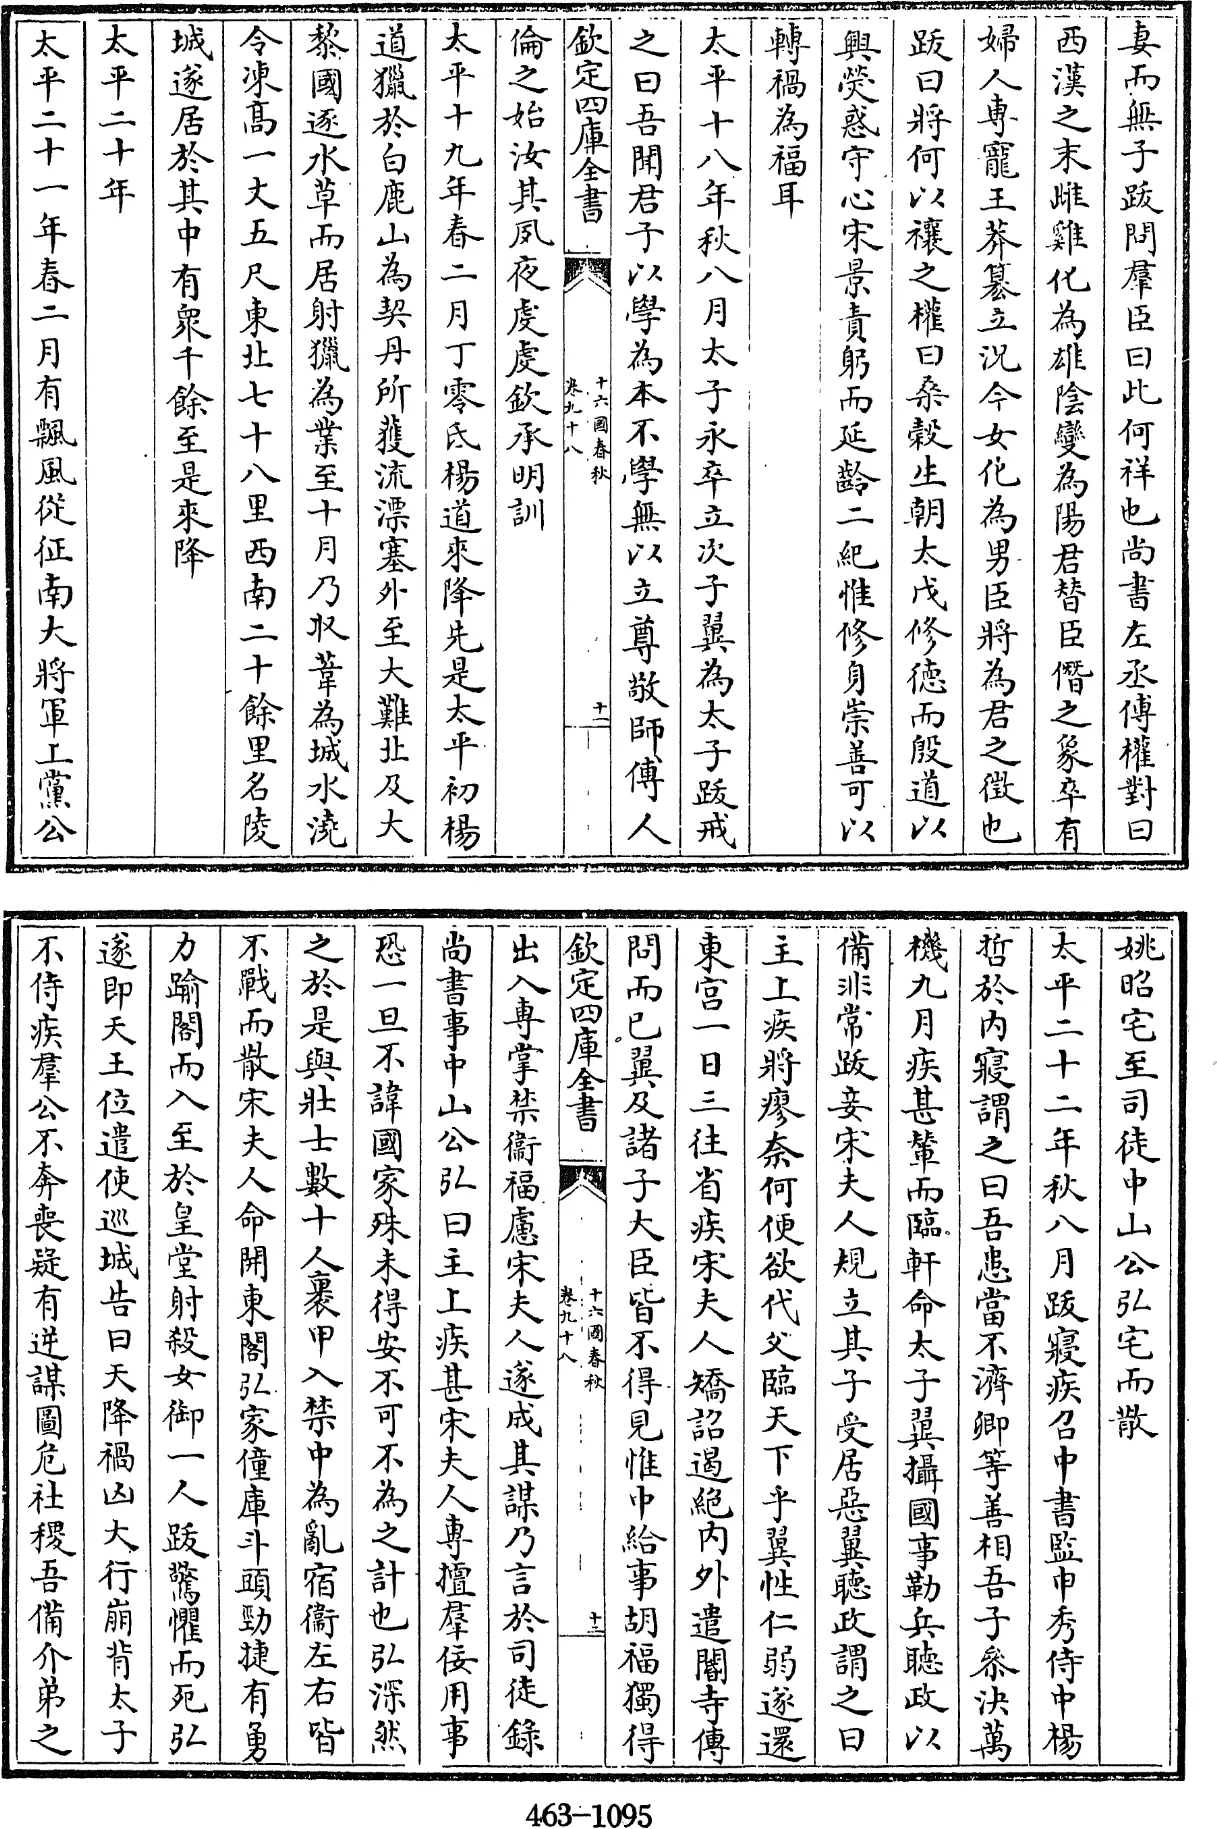 妻而無子跋問羣臣曰此何祥也尚書左丞傅權對曰
西漢之末雌雞化為雄陰變為陽君替臣僭之象卒有
婦人專寵王莽簒立況今女化為男臣將為君之徴也
跋曰將何以禳之權曰桑穀生朝太戊修德而殷道以
興熒惑守心宋景責躬而延齡二紀惟修身崇善可以
轉禍為福耳
太平十八年秋八月太子永卒立次子翼為太子跋戒
之曰吾聞君子以學為本不學無以立尊敬師傅人
欽定四庫全書
十六國春秋
卷九十八
十一
倫之始汝其夙夜虔處欽承明訓
太平十九年春二月丁零氏楊道來降先是太平初楊
道獵於白鹿山為契丹所獲流漂塞外至大難北及大
黎國逐水草而居射獵為業至十月乃収葦為城水澆
令凍髙一丈五尺東北七十八里西南二十餘里名陵
城遂居於其中有衆千餘至是來降
太平二十年
太平二十一年春二月有飄風從征南大將軍上黨公
姚昭宅至司徒中山公弘宅而散
太平二十二年秋八月跋寢疾召中書監申秀侍中楊
哲於内寢謂之曰吾患當不濟卿等善相吾子叅決萬
機九月疾甚輦而臨軒命太子翼攝國事勒兵聽政以
備非常跋妾宋夫人規立其子受居惡翼聽政謂之曰
主上疾將瘳奈何便欲代父臨天下乎翼性仁弱遂還
東宫一日三往省疾宋夫人矯詔遏絶内外遣閽寺傳
問而已翼及諸子大臣皆不得見惟中給事胡福獨得
欽定四庫全書
十六國春秋
卷九十八
十二
出入專掌禁衞福慮宋夫人遂成其謀乃言於司徒錄
尚書事中山公弘曰主上疾甚宋夫人專擅羣佞用事
恐一旦不諱國家殊未得安不可不為之計也弘深然
之於是與壯士數十人裹甲入禁中為亂宿衞左右皆
不戰而散宋夫人命開東閣弘家僮庫斗頭勁捷有勇
力踰閣而入至於皇堂射殺女御一人跋驚懼而死弘
遂即天王位遣使巡城告曰天降禍凶大行崩背太子
不侍疾羣公不奔喪疑有逆謀圖危社稷吾備介弟之
463-1095